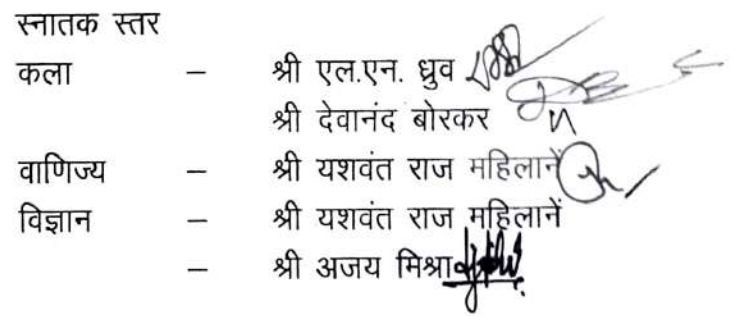 स्नातक स्तर
कला – श्री एल.एन. ध्रुव
श्री देवानंद बोरकर
वाणिज्य – श्री यशवंत राज महिलानें
विज्ञान – श्री यशवंत राज महिलानें
– श्री अजय मिश्रा